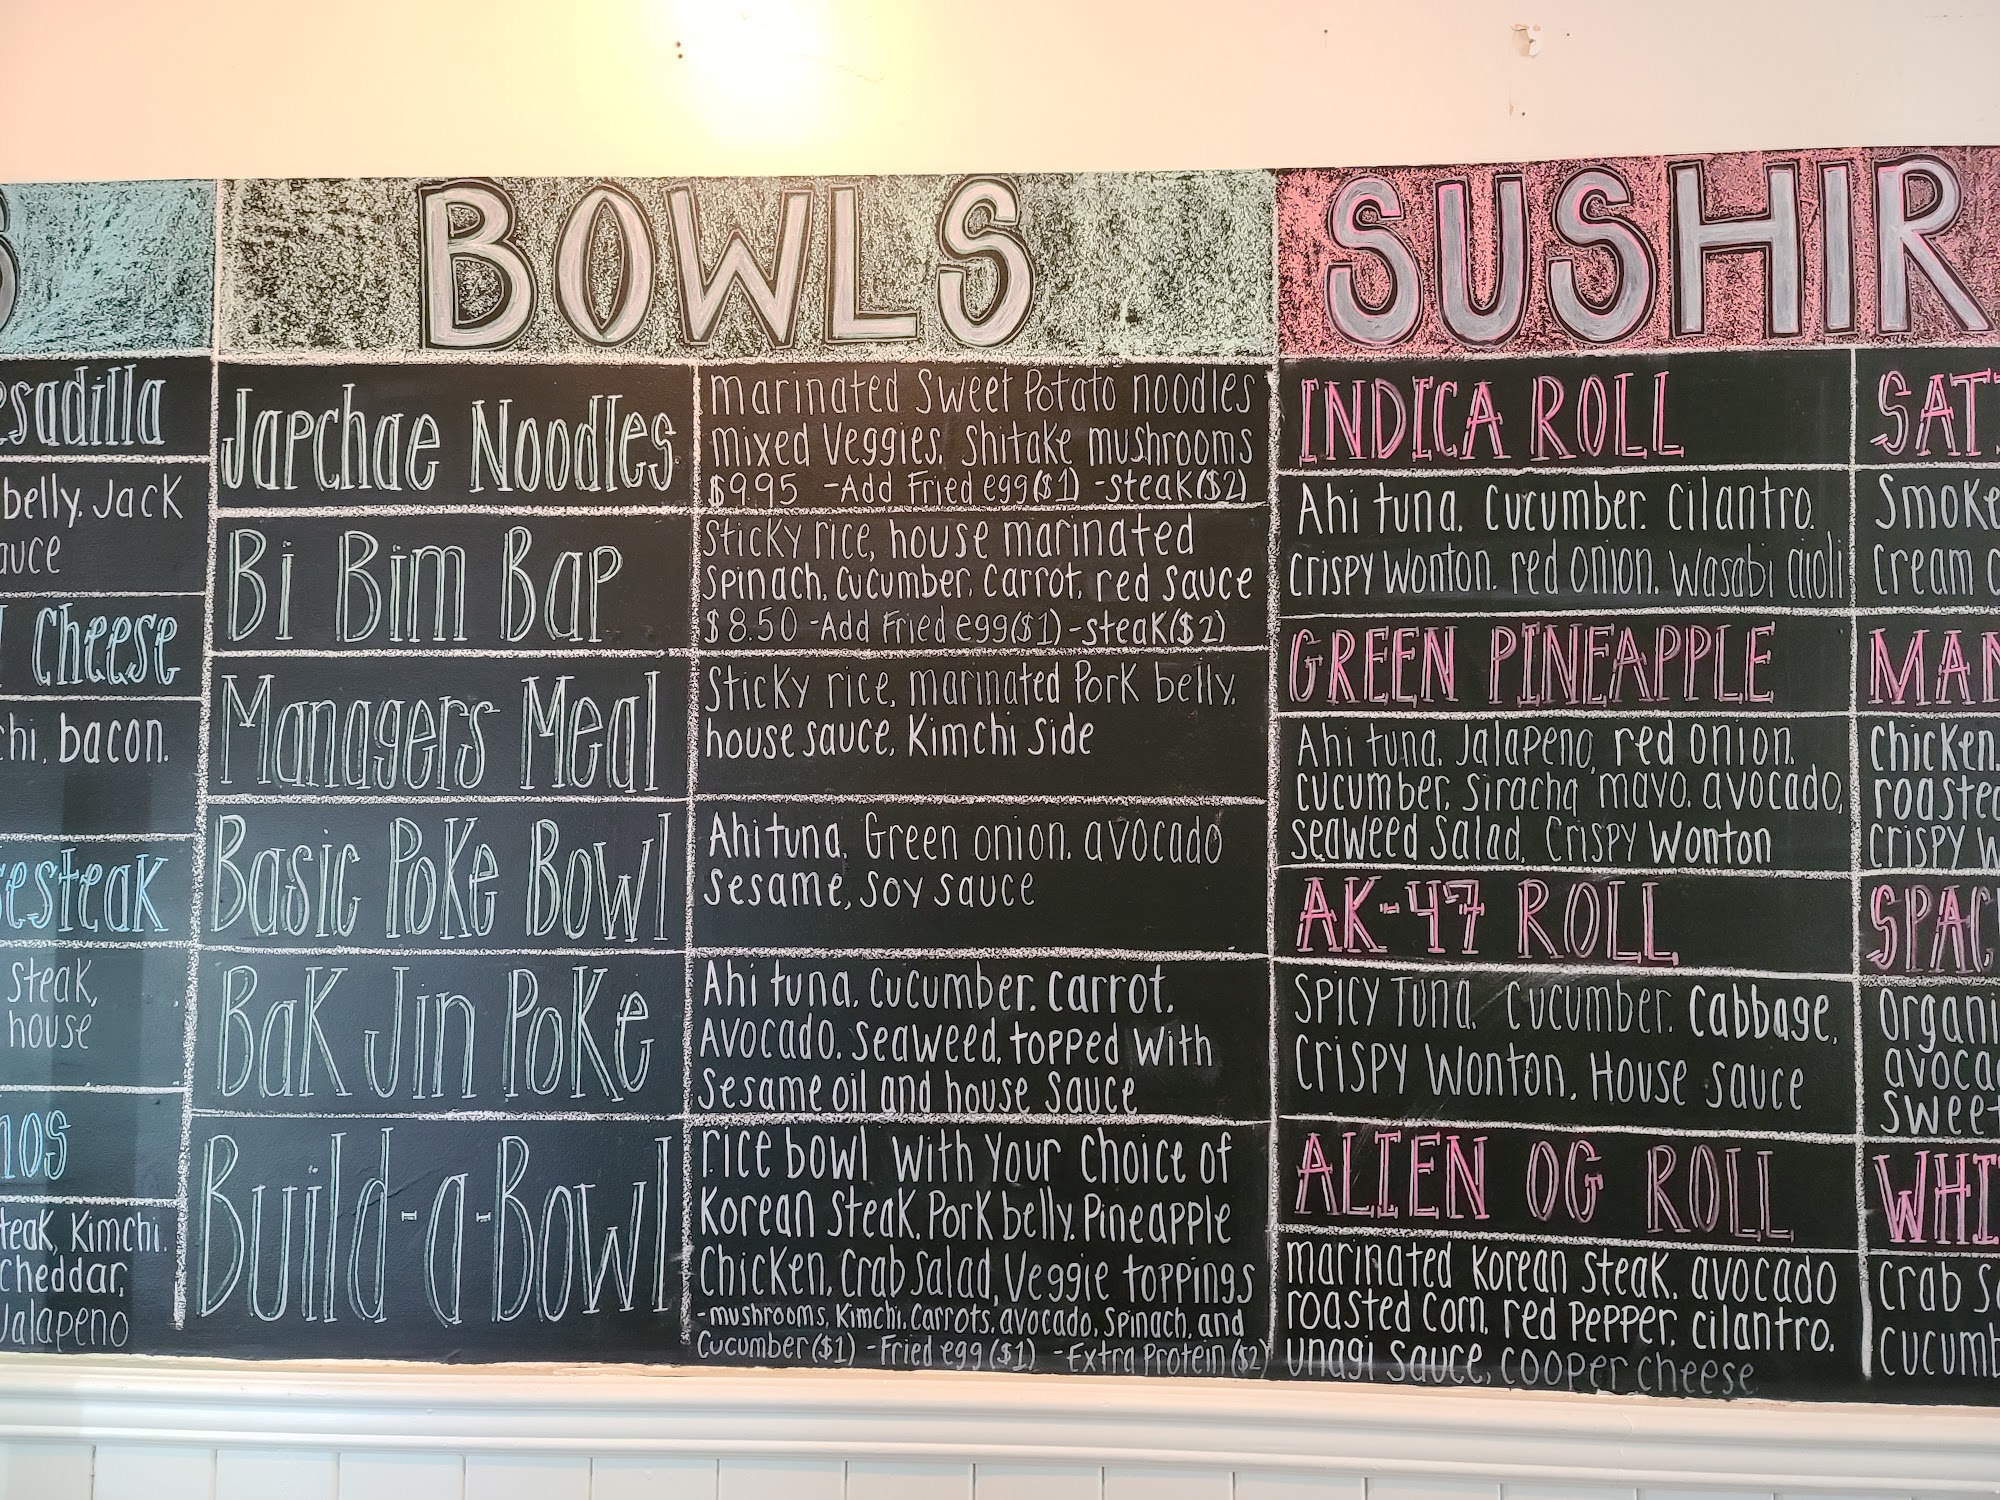 BOWLS
Japchae Noodles
marinated Sweet Potato noodles
mixed Veggies, Shitake mushrooms
$9.95 -Add Fried egg($1) -steak($2)
Bi Bim Bap
Sticky rice, house marinated
Spinach, cucumber, carrot, red sauce
$8.50 -Add Fried egg($1) -steak($2)
Managers Meal
Sticky rice, marinated Pork belly,
house sauce, Kimchi side
Basic Poke Bowl
Ahi tuna, Green onion, avocado
Sesame, soy sauce
Bak Jin Poke
Ahi tuna, cucumber, carrot,
Avocado, seaweed, topped with
Sesame oil and house sauce
Build-a-Bowl
rice bowl with your choice of
Korean steak, Pork belly, Pineapple
Chicken, Crab salad, Veggie toppings
-mushrooms, Kimchi, Carrots, avocado, Spinach, and
Cucumber($1) -Fried egg($1) -Extra Protein($2)
SUSHIR
INDICA ROLL
Ahi tuna, cucumber, cilantro,
crispy wonton, red onion, wasabi aioli
GREEN PINEAPPLE
Ahi tuna, Jalapeno, red onion,
cucumber, siracha mayo, avocado,
seaweed salad, crispy wonton
AK-47 ROLL
Spicy Tuna, cucumber, cabbage,
crispy wonton, House sauce
ALIEN OG ROLL
marinated Korean steak, avocado
roasted corn, red pepper, cilantro,
unagi sauce, cooper cheese
esadilla
belly, Jack
auce
cheese
chi, bacon,
esteak
steak,
house
hos
teak, Kimchi,
cheddar,
Jalapeno
SAT
Smoke
cream c
MAN
chicken,
roasted
crispy w
SPAC
organi
avoca
sweet
WHI
crab s
cucumb